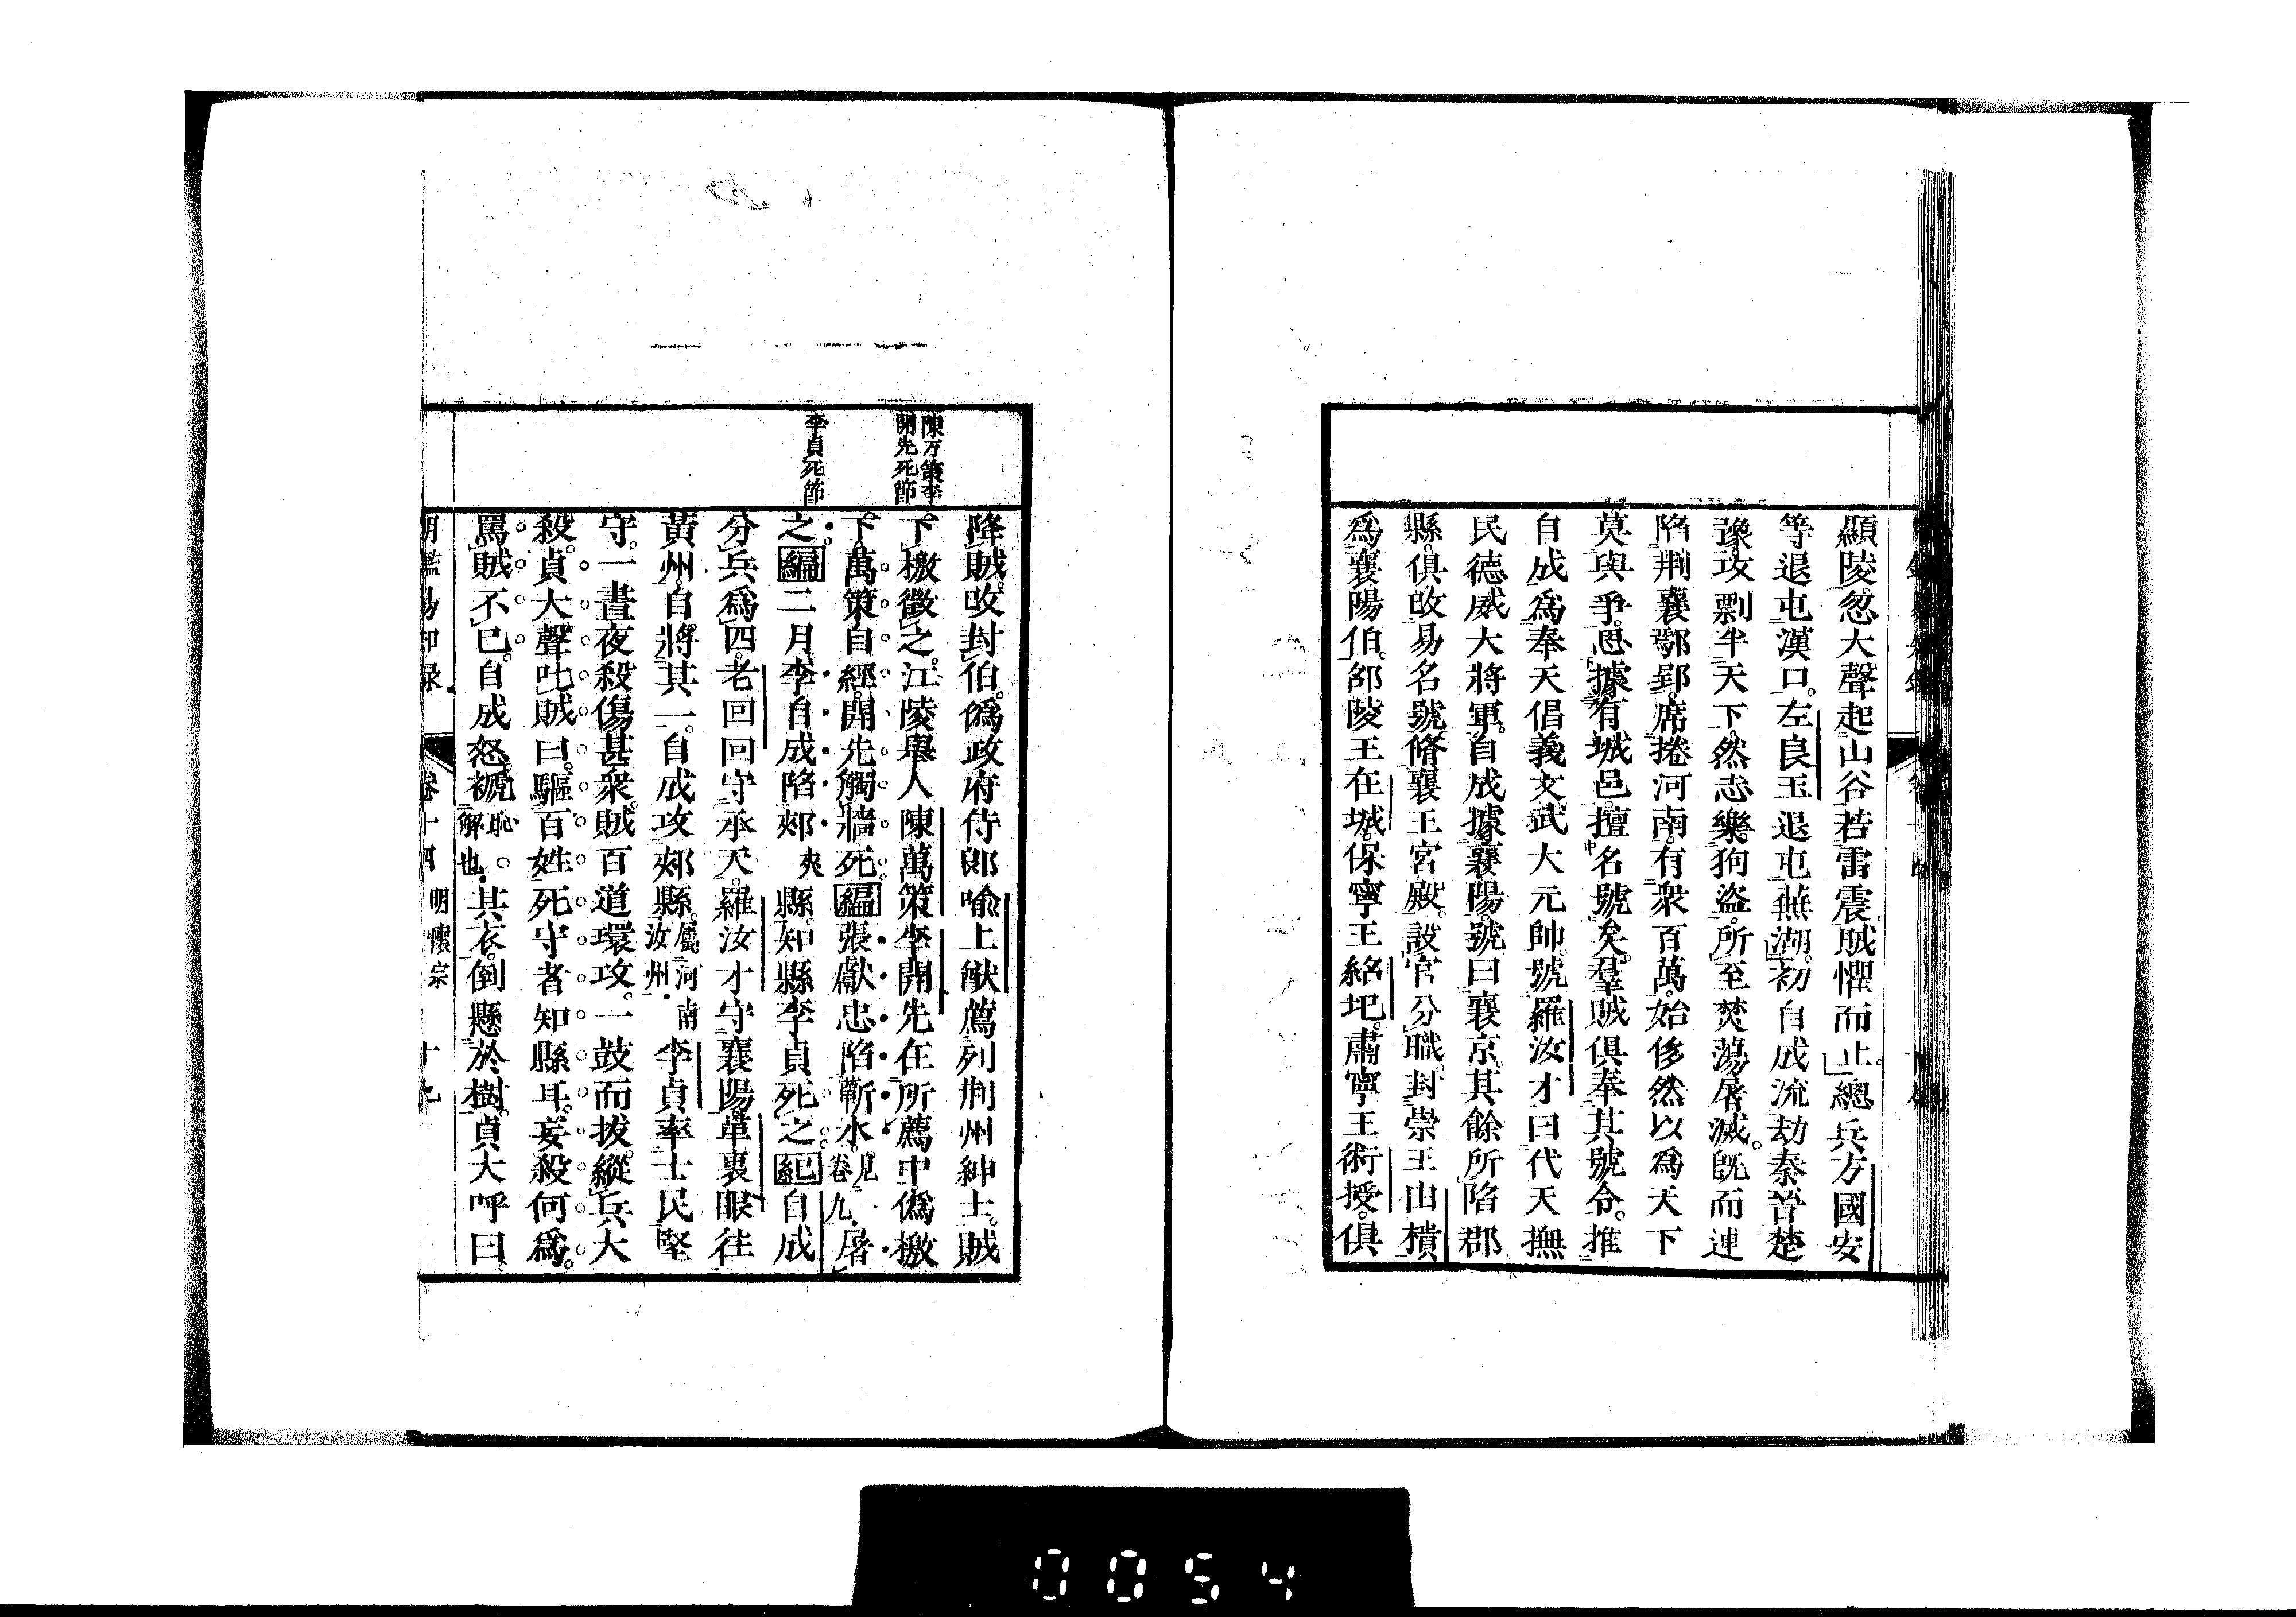 顯陵。忽大聲起山谷。若雷震。賊懼而止。總兵方國安
等退屯漢口。左良玉退屯蕪湖。初自成流劫秦晉楚
豫。攻剽半天下。然志樂狗盜。所至焚蕩屠滅。既而連
陷荆襄鄢郢。席捲河南。有衆百萬。始侈然以爲天下
莫與爭。思據有城邑。擅名號矣。羣賊俱奉其號令。推
自成爲奉天倡義文武大元帥。號羅汝才曰代天撫
民德威大將軍。自成據襄陽。號曰襄京。其餘所陷郡
縣。俱改易名號。脩襄王宮殿。設官分職。封崇王由樻
爲襄陽伯。邵陵王在城。保寧王紹圯。肅寧王術授。俱
陳万策李
開先死節
李貞死節
降賊。改封伯。僞政府侍郎喻上猷薦列荆州紳士。賊
下檄徵之。江陵舉人陳萬策李開先在所薦中。僞檄
下。萬策自經。開先觸牆死。編張獻忠陷蘄水。見卷九。屠
之。編二月李自成陷郟夾縣。知縣李貞死之。紀自成
分兵爲四。老回回守承天。羅汝才守襄陽。革裏眼往
黃州。自將其一。自成攻郟縣。屬河南汝州。李貞率士民堅
守。一晝夜殺傷甚衆。賊百道環攻。一鼓而拔。縱兵大
殺。貞大聲叱賊曰。驅百姓死守者知縣耳。妄殺何爲。
罵賊不已。自成怒。褫恥。解也。其衣。倒懸於樹。貞大呼曰。
明鑑易知录 卷十四 明懷宗 十九
0054